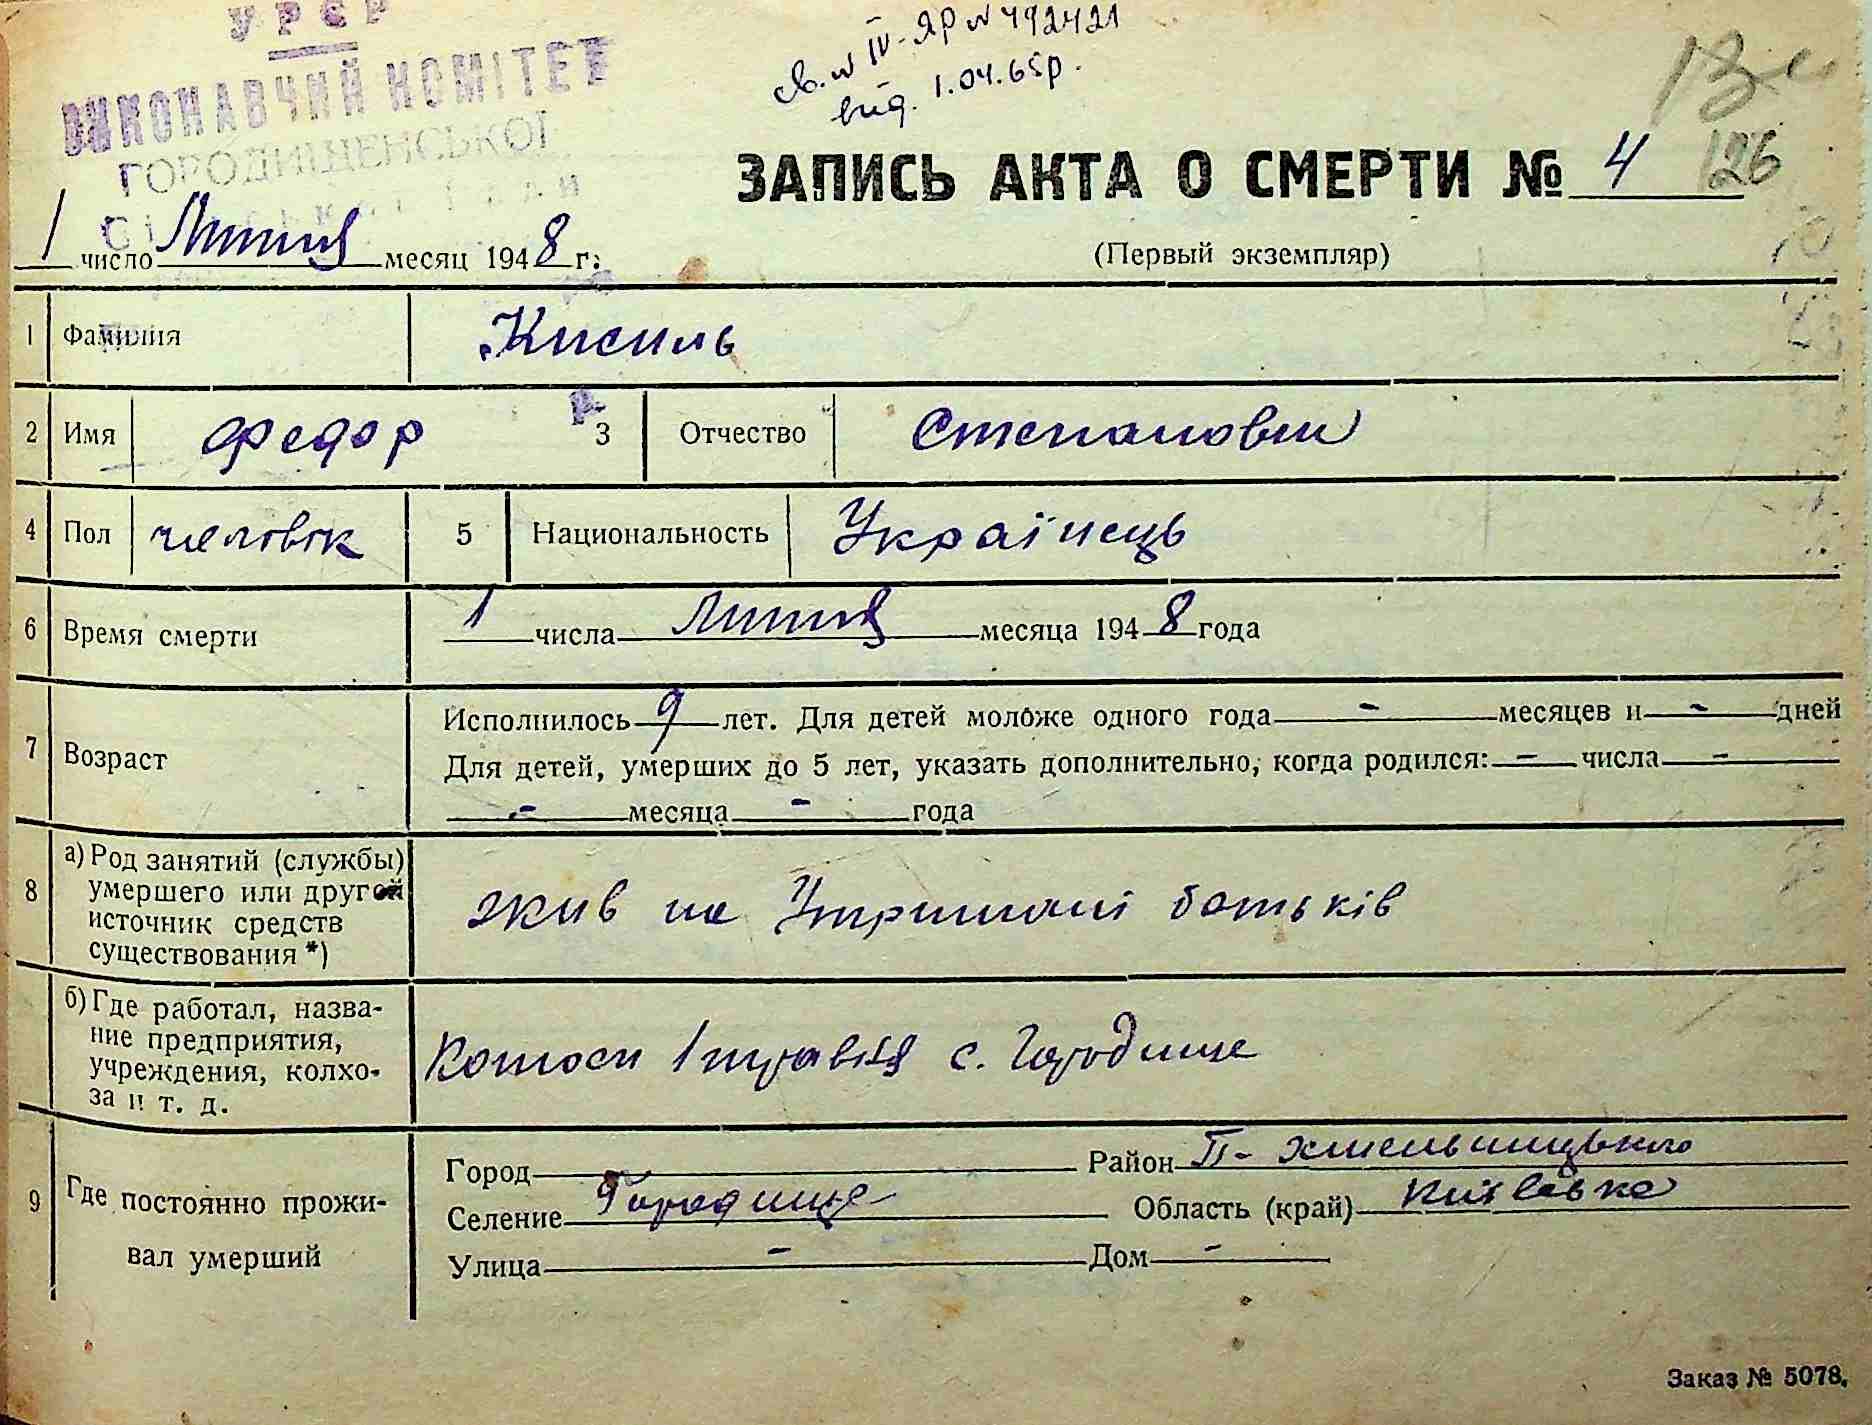 УРСР
ВИКОНАВЧИЙ КОМІТЕТ
ГОРОДИЩЕНСЬКОЇ
св. № IV-ЯР № 492421
від. 1.04.65р.
ЗАПИСЬ АКТА О СМЕРТИ № 4
126
1 число Липня месяц 1948 г.
(Первый экземпляр)
1 Фамилия Кисиль
2 Имя Федор 3 Отчество Степанович
4 Пол человік 5 Национальность Українець
6 Время смерти 1 числа Липня месяца 1948 года
7 Возраст
Исполнилось 9 лет. Для детей моложе одного года - месяцев и - дней
Для детей, умерших до 5 лет, указать дополнительно, когда родился: - числа -
- месяца - года
8 а) Род занятий (службы)
умершего или другой
источник средств
существования *)
жив на Утримані батьків
б) Где работал, назва-
ние предприятия,
учреждения, колхо-
за и т. д.
1 травня с. Городище
9 Где постоянно прожи-
вал умерший
Город Район Б-Хмельницького
Селение Городище Область (край) Київська
Улица - Дом -
Заказ № 5078.